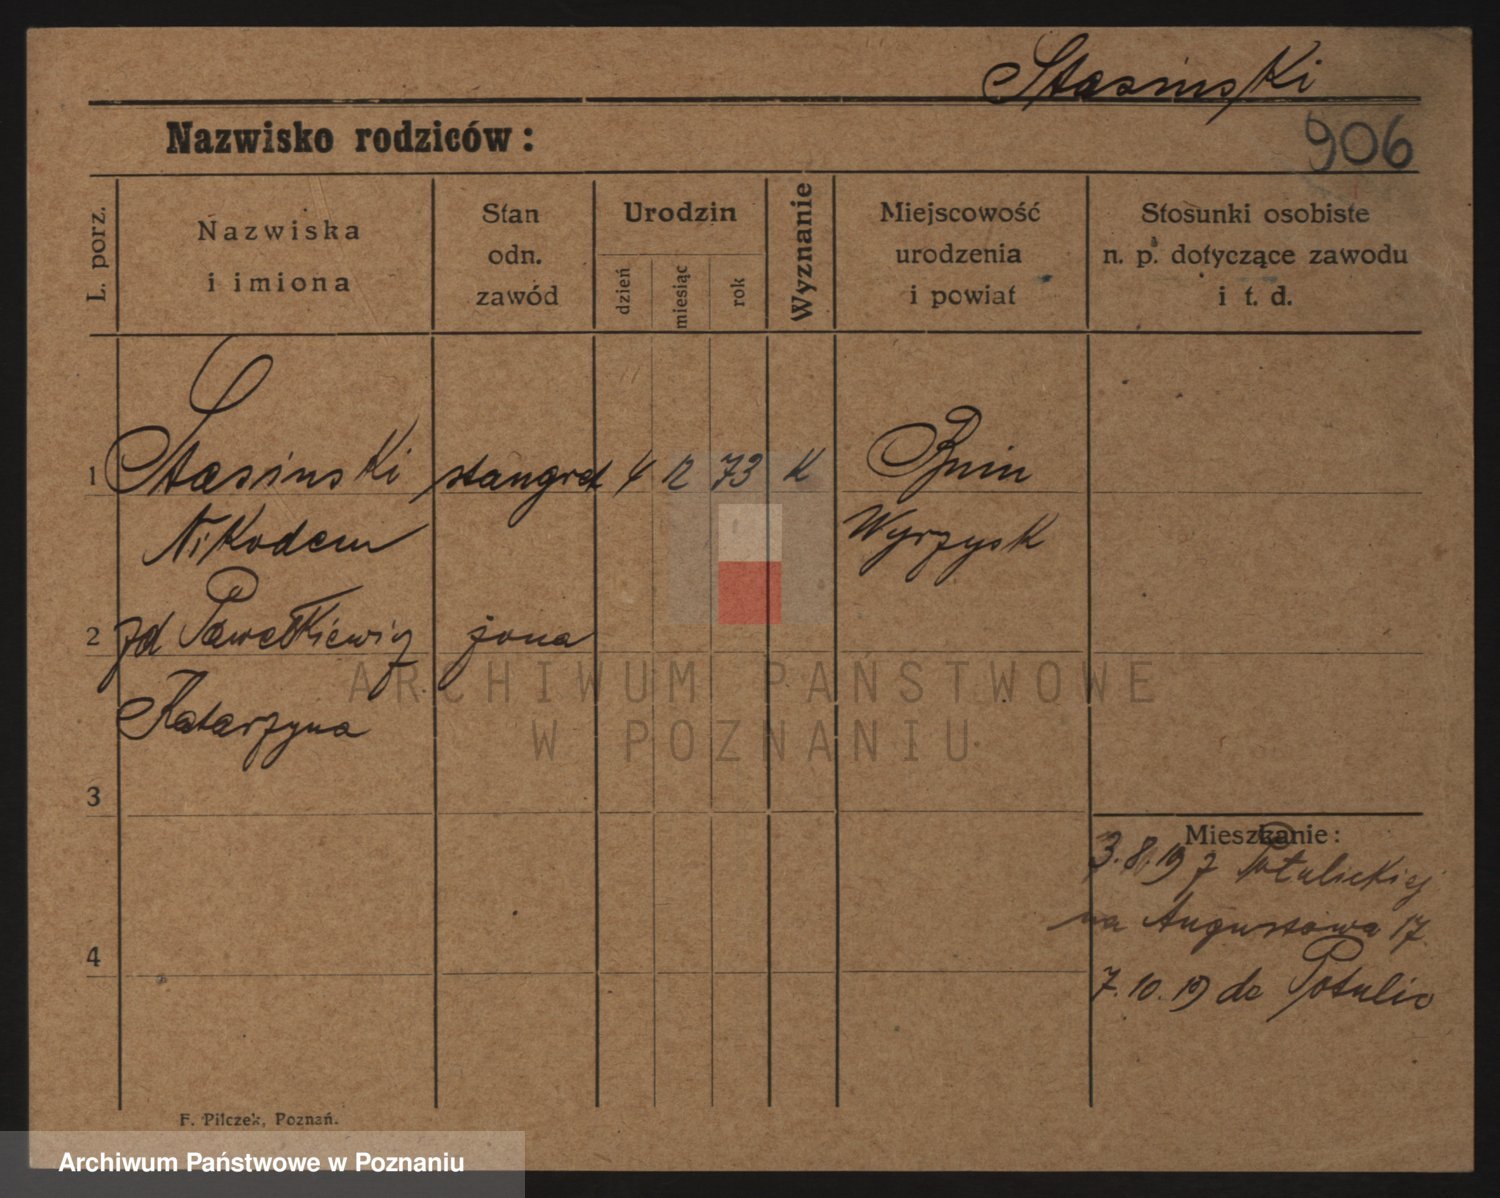 Stasinski
Nazwisko rodziców:
906
L. porz.
Nazwiska
i imiona
Stan
odn.
zawód
Urodzin
dzień
miesiąc
rok
Wyznanie
Miejscowość
urodzenia
i powiat
Stosunki osobiste
n. p. dotyczące zawodu
i t. d.
1 Stasinski stangret 4 12 73 K Bnin
Nikodem Wyrzysk
2 zd Pawełkiewicz żona
Katarzyna
3
4
Mieszkanie:
3.8.19 z Potulickiej
na Augustowa 17.
7.10.19 do Potulic
F. Pilczek, Poznań.
ARCHIWUM PAŃSTWOWE
W POZNANIU
Archiwum Państwowe w Poznaniu